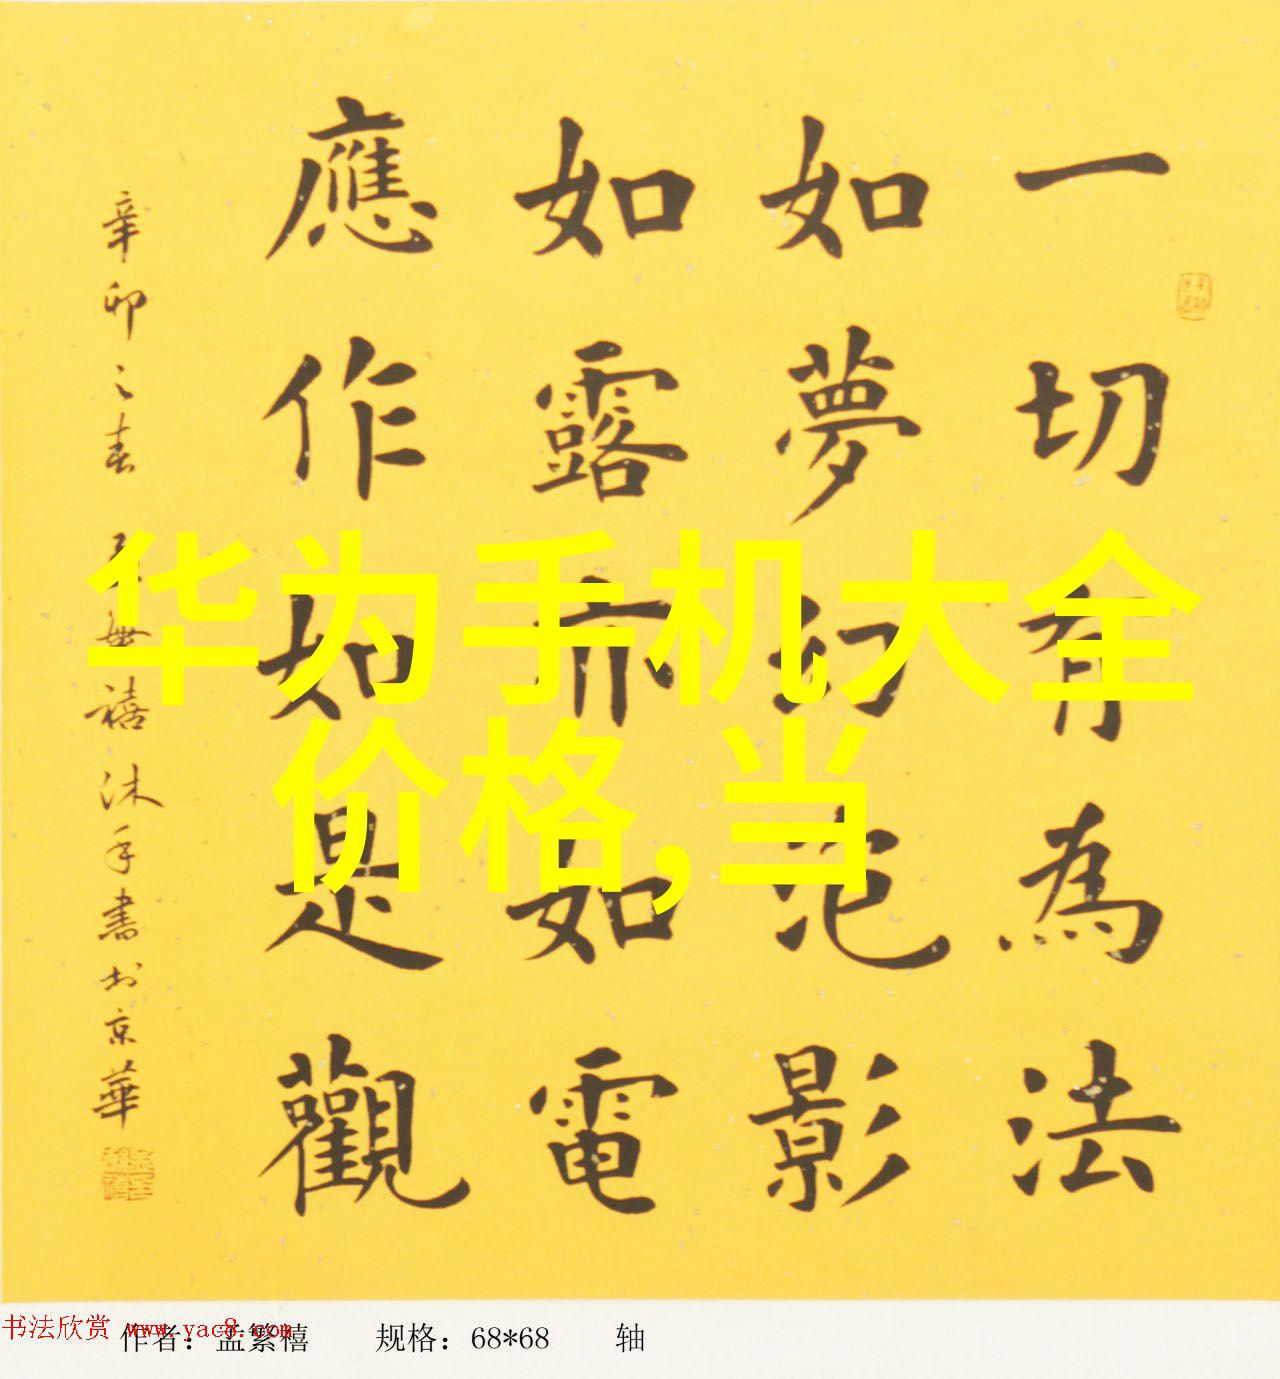 一切有為法
如夢幻泡影
如露亦如電
應作如是觀
辛卯之春孟繁禧沐手書於京華
华为手机大全
价格,当
书法欣赏 www.yac8.com
作者：孟繁禧 规格：68*68 轴